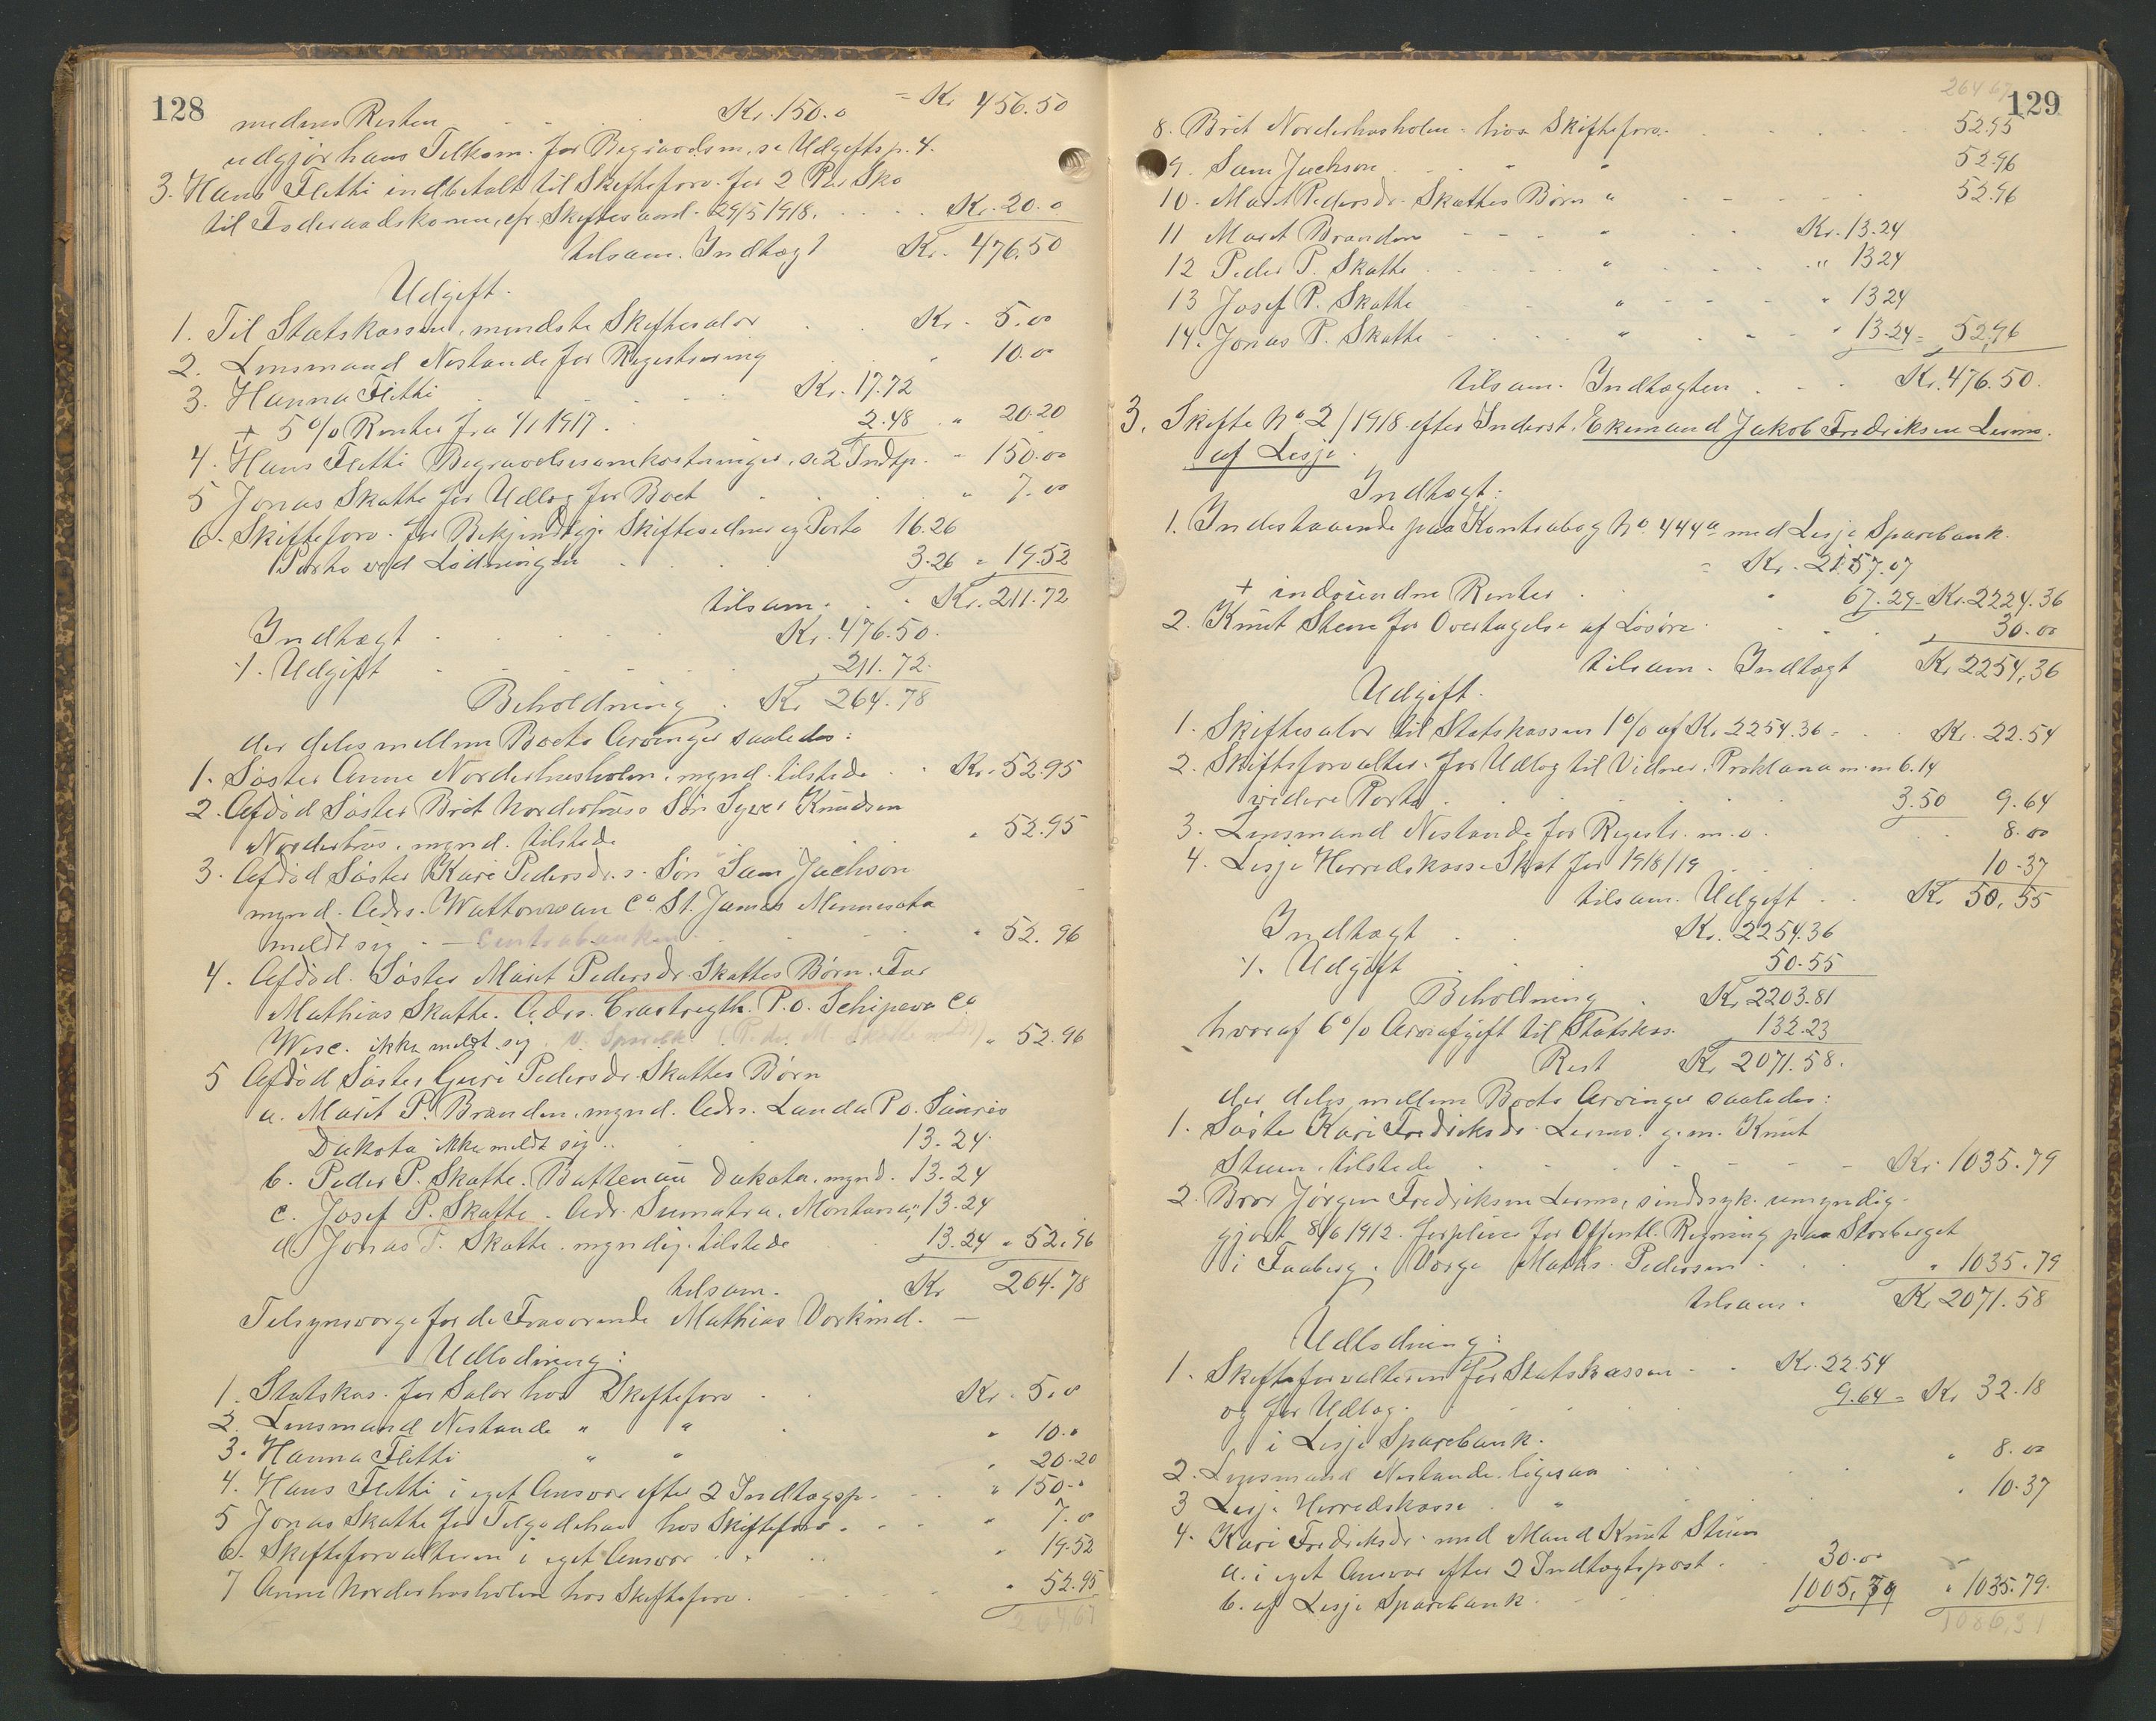 128
medens Resten Kr. 150.0 = Kr 456.50
udgjör hans Tilkom. for Begravelsen, se Udgiftsp. 4.
3. Hans Flitti indbetalt til Skifteforv. for 2 Par Sko
til Föderaadskonen, cfr. Skiftesaml. 29/5 1918. Kr. 20.0
tilsam. Indtægt Kr. 476.50
Udgift.
1. Til Statskassen, mindste Skiftesalær Kr. 5.00
2. Lensmand Nestande for Registrering " 10.00
3. Hanna Flitti Kr. 17.72
+ 5 % Renter fra 1/1 1917. 2.48 " 20.20
4. Hans Flitti Begravelsesomkostninger, se 2 Indtp. " 150.00
5 Jonas Skotte for Udlæg for Boet " 7.00
6. Skifteforv. for Bekjendtgj. Skiftesedner og Porto 16.26
Porto ved Lodningen 3.26 " 19.52
tilsam. Kr. 211.72
Indtægt Kr. 476.50.
·/. Udgift 211.72.
Beholdning. Kr 264.78
der deles mellem Boets Arvinger saaledes:
1. Söster Anne Norderhusholen, mynd. tilstede Kr. 52.95
2. Afdöd Söster Brit Norderhus's Sön Syver Knudsen
Norderhus, mynd. tilstede " 52.95
3. Afdöd Söster Kari Pedersdr.s Sön Sam Jachson
mynd. Adrs. Wattonwan Co. St. James Minnesota
meldt sig - Centrabanken " 52.96
4. Afdöd Söster Marit Pedersdr. Skottes Börn. Far
Mathias Skotte. Adrs. P.O. Co.
Wisc. ikke meldt sig. " 52.96
5 Afdöd Söster Guri Pedersdr. Skottes Börn
a. Marit P. Branden, mynd. Adrs. Landa P.O.
Dakota ikke meldt sig. 13.24.
b. Peder P. Skotte. Dakota, mynd. 13.24
c. Josef P. Skotte. Adr. Sumatra, Montana, 13.24
d. Jonas P. Skotte. myndig. tilstede 13.24 " 52.96
tilsam. Kr 264.78
Tilsynsværge for de Fraværende Mathias Vorkind. —
Udlodning:
1. Statskas. for Salær hos Skifteforv. Kr. 5.0
2. Lensmand Nestande " " " 10.0
3. Hanna Flitti " " " 20.20
4. Hans Flitti i eget Ansvar efter 2 Indtægsp. " 150.0
5 Jonas Skotte for Tilgodehav. hos Skifteforv. " 7.0
6. Skifteforvalteren i eget Ansvar " 19.52
7 Anne Norderhusholen hos Skifteforv. " 52.95
264,67
264 67
129
8. Brit Norderhusholen hos Skifteforv. 52.95
9. Sam Jachson " 52.96
10. Marit Pedersdr. Skottes Börn " 52.96
11 Marit Branden " Kr. 13.24
12 Peder P. Skotte " " 13 24
13 Josef P. Skotte " " 13 24
14. Jonas P. Skotte " " 13.24 = 52,96
tilsam. Indtægten Kr. 476.50.
3. Skifte No 2/1918 efter Inderst, Ekemand Jakob Fredriksen Lesmo.
af Lesje.
Indtægt:
1. Indestaaende paa Kontrabog No. 444a med Lesje Sparebank.
= Kr. 2157.07
+ indvundne Renter " 67.29 = Kr. 2224.36
2. Knut Steen for Overtagelse af Lösöre " 30.00
tilsam. Indtægt Kr 2254,36
Udgift.
1. Skiftesalær til Statskassen 1 % af Kr. 2254.36 = Kr. 22.54
2. Skifteforvalter. for Udlæg til Vidner, Proklama m.m 6.14
videre Porto 3.50 9.64
3. Lensmand Nestande for Registr. m.v. 8.00
4. Lesje Herredskasse Skat for 1918/19 10.37
tilsam. Udgift Kr 50,55
Indtægt Kr. 2254.36
·/. Udgift 50.55
Beholdning. Kr 2203.81
hvoraf 6% Arveafgift til Statskas. 132.23
Rest Kr 2071.58.
der deles mellem Boets Arvinger saaledes:
1. Söster Kari Fredriksdr. Lesmo. g.m. Knut
Steen, tilstede Kr. 1035.79
2. Bror Jörgen Fredriksen Lesmo, sindssyk. umyndig-
gjort 8/6 1912. forpleies for Offentl. Regning paa Storberget
i Faaberg. Værge Mathis Pedersen " 1035.79
tilsam. Kr 2071.58
Udlodning:
1. Skifteforvalteren for Statskassen Kr. 22.54
og for Udlæg. 9.64 = Kr 32.18
i Lesje Sparebank.
2. Lensmand Nestande ligesaa " 8.00
3 Lesje Herredskasse " " 10.37
4. Kari Fredriksdr. med Mand Knut Steen
a. i eget Ansvar efter 2 Indtægtspost. 30.00
b. af Lesje Sparebank 1005,79 " 1035.79.
1086,34